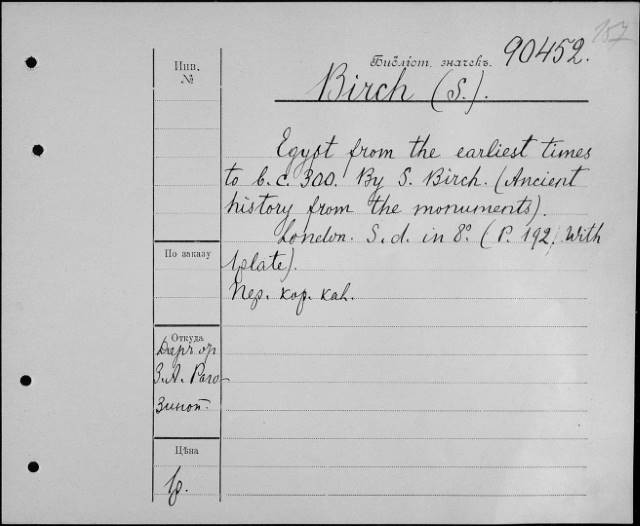 157
Библіот. значекъ. 90452.
Birch (S.).
Инв.
№
Egypt from the earliest times
to b. c. 300. By S. Birch. (Ancient
history from the monuments).
London. S. d. in 8º. (P. 192. With
1 plate).
Пер. кор. кал.
По заказу
Откуда
Даръ
З. А. Раго-
зиной.
Цѣна
1 р.